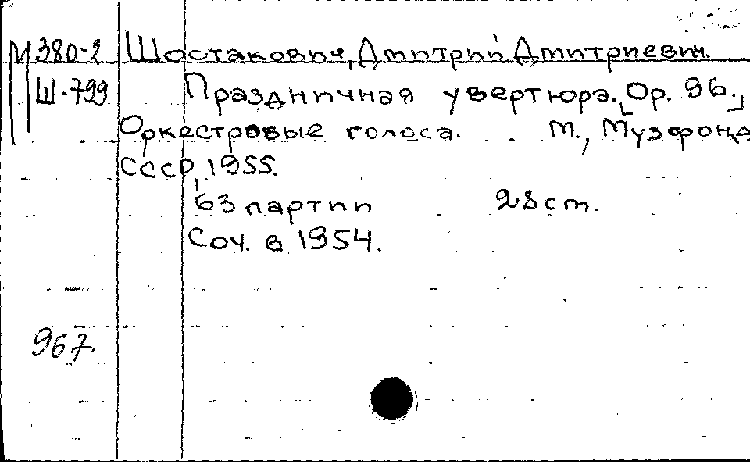 М380-2 Шостакович, Дмитрий Дмитриевич.
Ш-799 Праздничная увертюра. [Ор. 96.]
Оркестровые голоса. М., Музфонд
СССР, 1955.
63 партии 28 cm.
Соч. в 1954.
967.